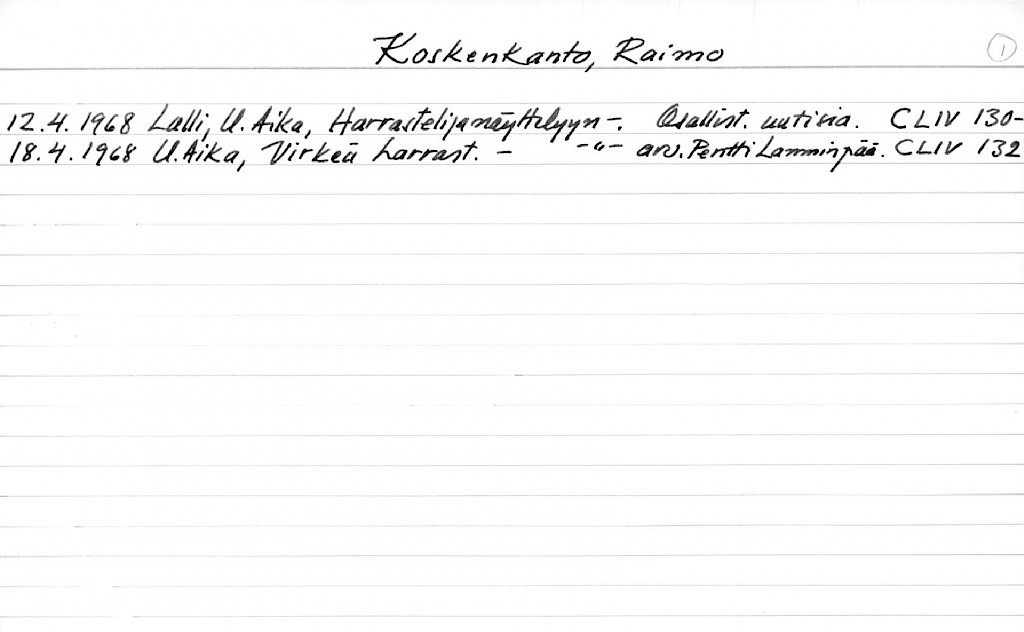 Koskenkanto, Raimo 1
12.4.1968 Lalli, U. Aika, Harrastelijanäyttelyyn -. Osallist. uutisia. CLIV 130-
18.4.1968 U. Aika, Virkeä harrast. - -"- arv. Pentti Lamminpää. CLIV 132